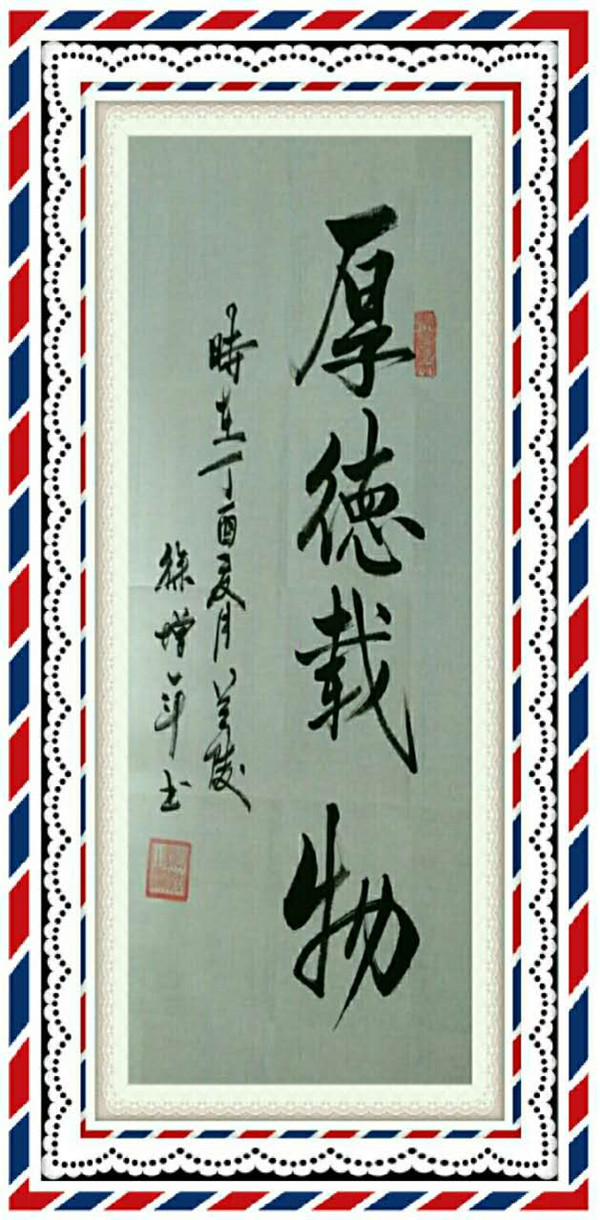 厚德载物
時在丁酉夏月兰陵
徐增军书